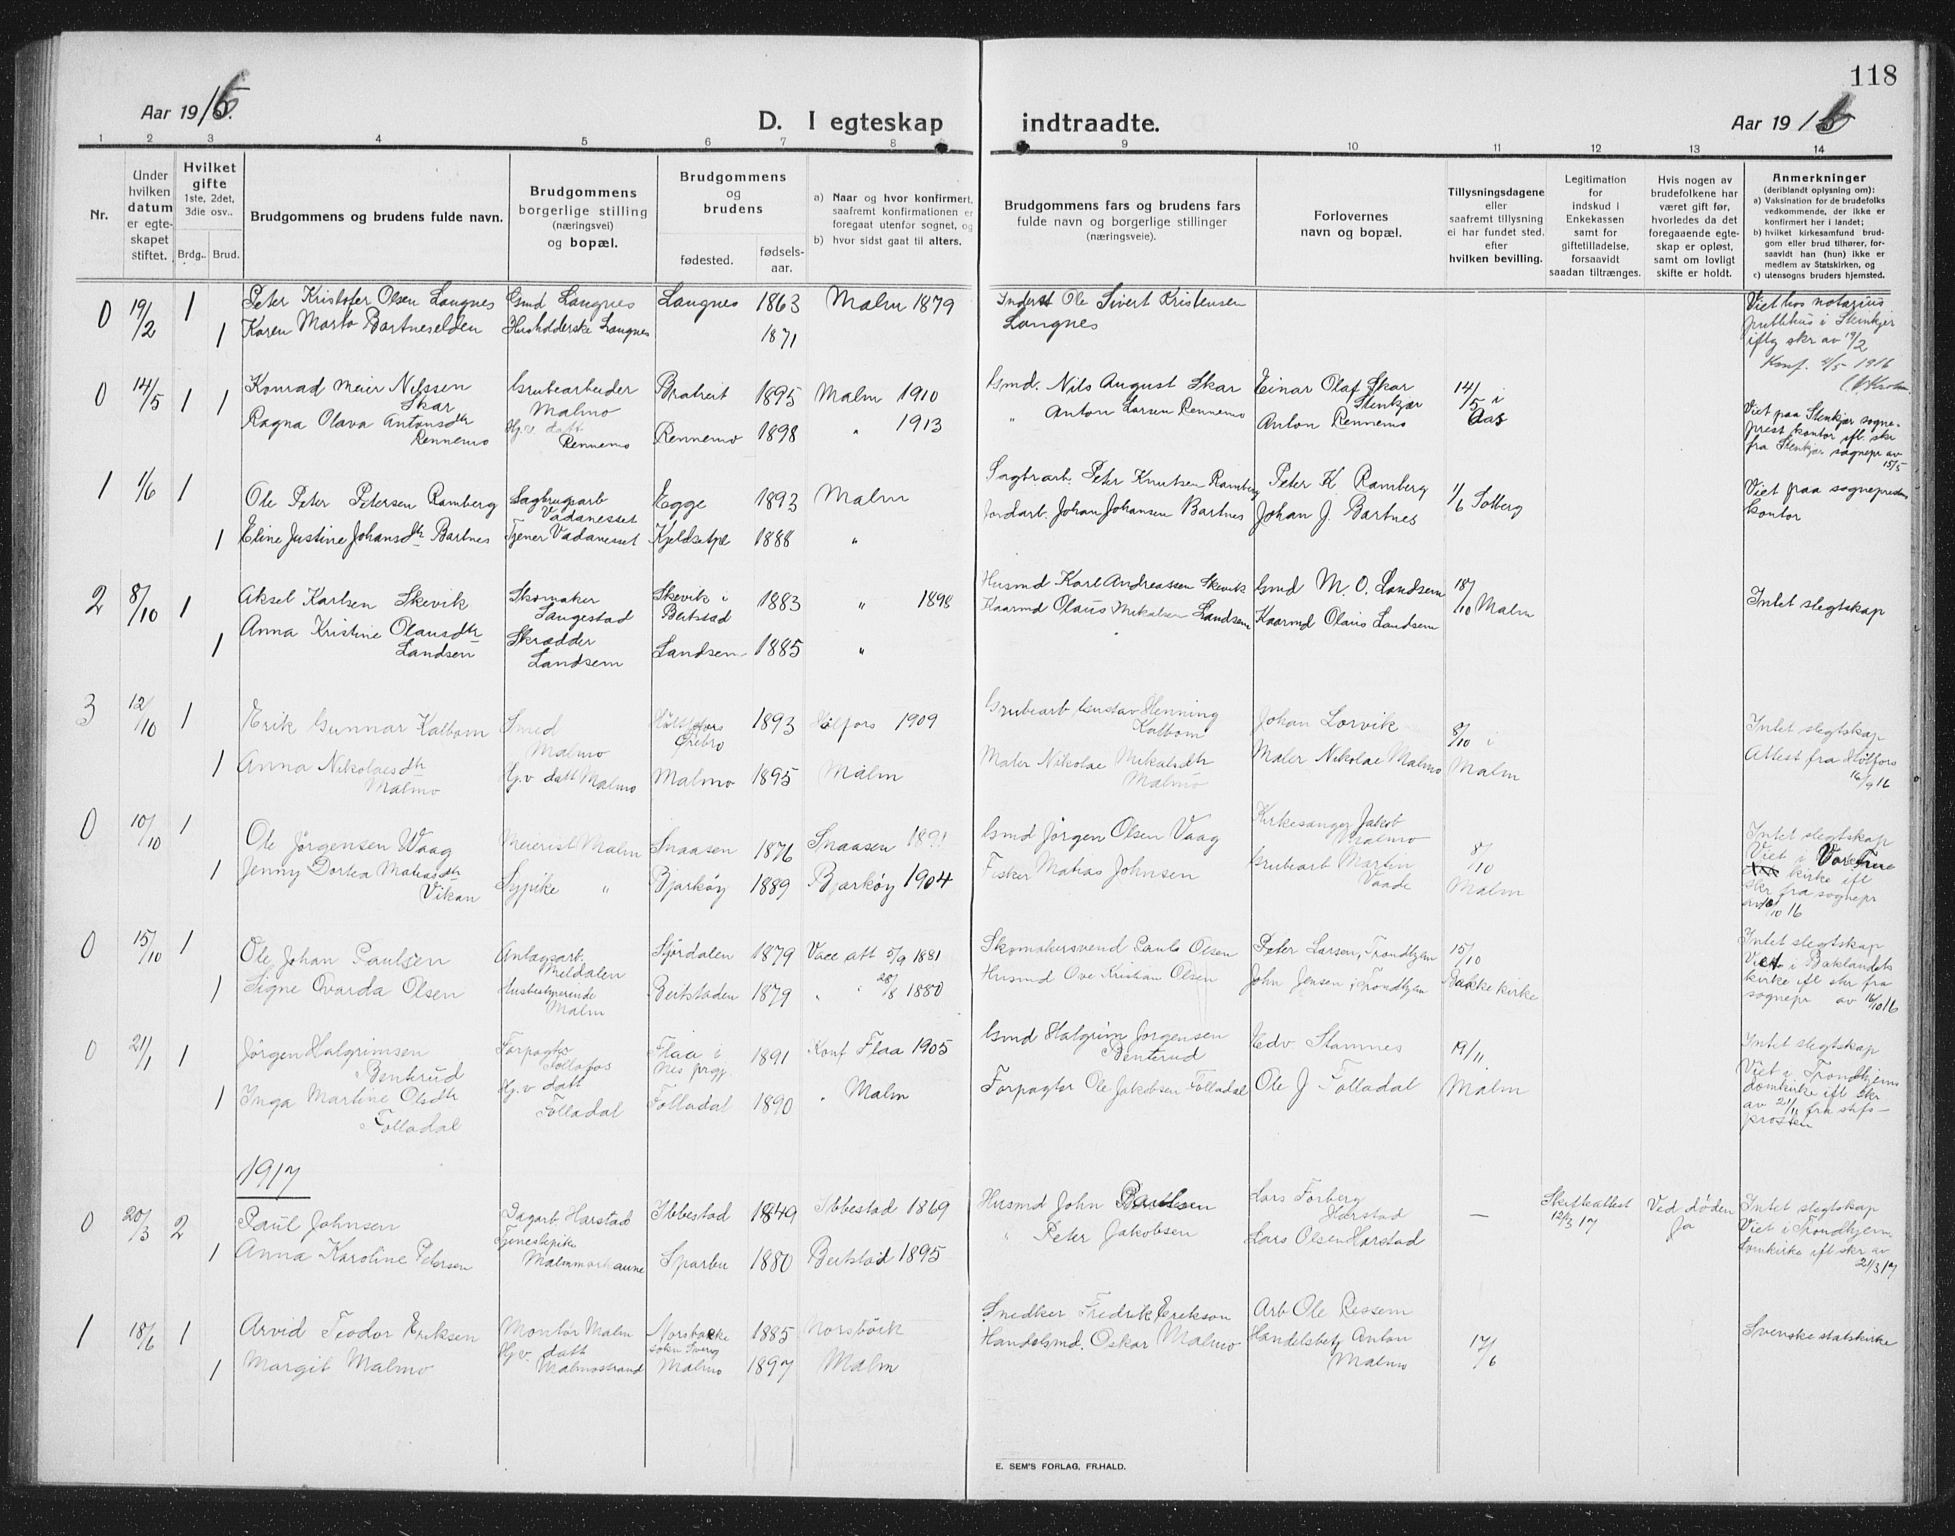 118
Aar 1916.
D. I egteskap indtraadte.
Aar 1916
1 2 3 4 5 6 7 8 9 10 11 12 13 14
Nr.
Under hvilken datum er egteskapet stiftet.
Hvilket gifte
1ste, 2det, 3die osv..
Brdg.. Brud.
Brudgommens og brudens fulde navn.
Brudgommens borgerlige stilling (næringsvei) og bopæl.
Brudgommens og brudens
fødested.
fødsels-aar.
a) Naar og hvor konfirmert, saafremt konfirmationen er foregaat utenfor sognet, og
b) hvor sidst gaat til alters.
Brudgommens fars og brudens fars fulde navn og borgerlige stillinger (næringsveie).
Forlovernes navn og bopæl.
Tillysningsdagene eller saafremt tillysning ei har fundet sted, efter hvilken bevilling.
Legitimation for indskud i Enkekassen samt for giftetilladelse, forsaavidt saadan tiltrænges.
Hvis nogen av brudefolkene har været gift før, hvorledes da det foregaaende egteskap er opløst, samt om lovligt skifte er holdt.
Anmerkninger
(deriblandt oplysning om):
a) Vaksination for de brudefolks vedkommende, der ikke er konfirmert her i landet;
b) hvilket kirkesamfund brudgom eller brud tilhører, forsaavidt han (hun) ikke er medlem av Statskirken, og
c) utensogns bruders hjemsted.
0 19/2 1 Peter Kristofer Olsen Langnes Gmd Langnes Langnes 1863 Malm 1879 Inderst Ole Sivert Kristensen Langnes
1 Karen Marta Bartneselden Husholderske Langnes 1871
Viet hos notarius
i Stenkjer
iflg skr av 19/2
Konf. 4/5 1916
0 14/5 1 1 Konrad Meier Nilssen Skar Grubearbeider Malmo 1895 Malm 1910 Gmd. Nils August Skar Einar Olaf Skar Stenkjær 14/5 i Aas
Ragna Olava Antonsdtr Rennemo Hj.v. datt Rennemo Rennemo 1898 " 1913 " Anton Larsen Rennemo Anton Rennemo
Viet paa Stenkjær sogne-
prest kontor ifl. skr
fra Stenkjær sognepr av
15/5
1 1/6 1 Ole Peter Petersen Ramberg Sagbrugsarb Vadanesset Egge 1893 Malm Sagbrarb. Peter Knutsen Ramberg Peter K. Ramberg 1/6 Solberg
1 Eline Justine Johansdtr Bartnes Tjener Vadanesset Kjeldsetpl 1888 " Jordarb. Johan Johansen Bartnes Johan J. Bartnes
Viet paa sogneprestens
kontor
2 8/10 1 Aksel Karlsen Skevik Skomaker Langestad Skevik i Beitstad 1883 " 1898 Husmd Karl Andreassen Skevik Gmd M. O. Landsem 18/10 Malm
1 Anna Kristine Olausdtr Landsem Skrædder Landsem Landsem 1885 " Kaarmd Olaus Mikalsen Landsem Kaarmd Olaus Landsem
Intet slegtskap
3 12/10 1 Erik Gunnar Kalbom Smed Malmo Örebro 1893 Helfors 1909 Grubearb Gustav Henning Kalbom Johan Lorvik 8/10 i Malm
1 Anna Nikolaisdtr Malmo Hj.v datt Malmo Malmo 1895 Malm Maler Nikolae Mikalsdtr Malmo Maler Nikolae Malmo
Intet slegtskap
Attest fra Hölfors
16/9 16
0 10/10 1 Ole Jørgensen Waag Meierist Malm Snaasen 1876 Snaasen 1891 Gmd Jørgen Olsen Vaag Kirkesanger Jakob Malmo 8/10 Malm
1 Jenny Dortea Matiasdtr Vikan Sypike " Bjarköy 1889 Bjarköy 1904 Fisker Matias Johnsen Grubearb Martin Vaade
Intet slegtskap
Viet i Vor Frue
kirke ifl
skr fra sognepr
av 10/10 16
0 15/10 1 Ole Johan Paulsen Anlægsarb. Meldalen Stjørdalen 1879 Vacc att 5/9 1881 Skomakersvend Paul Olsen Peter Larsen, Trondhjem 15/10 Bakke kirke
1 Signe Ovarda Olsen Husbestyrerinde Malm Beitstaden 1879 " " 28/8 1880 Husmd Ove Kristian Olsen John Jensen, Trondhjem
Intet slegtskap
Viet i Baklandets
kirke ifl skr fra
sognepr av 16/10 16
0 21/1 1 Jörgen Halgrimsen Bentrud Forpagter Follafos Flaa i Nes prgj. 1891 Konf Flaa 1905 Gmd Halgrim Jorgensen Bentrud Edv Stamnes 19/11. Malm
1 Inga Martine Olsdtr Folladal Hj.v datt Folladal Folladal 1890 " Malm Forpagter Ole Jakobsen Folladal Ole J Folladal
Intet slegtskap
Viet i Trondhjems
domkirke ifl skr
av 21/11 fra stifs-
prosten
1917
0 20/3 2 Paul Johnsen Dagarb. Harstad Ibbestad 1849 Ibbestad 1869 Husmd John Lars Forberg Harstad — Skifteattest 12/3 17 Ved døden Ja
1 Anna Karoline Petersen Tjenestepike Sparbu 1880 Beitstad 1895 " Peter Jakobsen Lars Olsen Harstad
Intet slegtskap
Viet i Trondhjem
domkirke ifl skr av
21/3 17
1 18/6 1 Arvid Teodor Eriksen Montör Malm Norsbacke sokn Sverg 1885 Norsbäck Snedker Fredrik Erikson Arb Ole Ressem 17/6
1 Margit Malmo Hj.v. datt Malmostrand Malmo 1897 Malm Handelsmd. Oskar Malmo Handelsbetj Anton Malmo
Svenske statskirke
E. SEM'S FORLAG, FR.HALD.